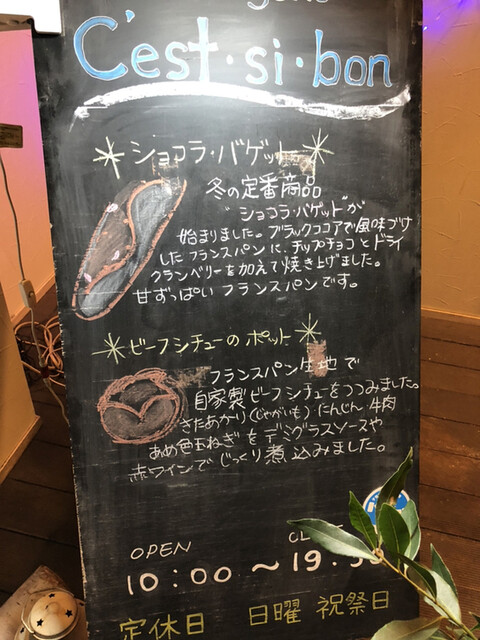 C'est・si・bon
ショコラ・バゲット
冬の定番商品
"ショコラ・バゲット"が
始まりました。ブラックココアで風味づけ
したフランスパンに、チップチョコとドライ
クランベリーを加えて焼き上げました。
甘ずっぱいフランスパンです。
ビーフシチューのポット
フランスパン生地で
自家製ビーフシチューをつつみました。
きたあかり(じゃがいも)にんじん、牛肉
あめ色玉ねぎをデミグラスソースや
赤ワインでじっくり煮込みました。
OPEN
10:00～19:
定休日 日曜 祝祭日